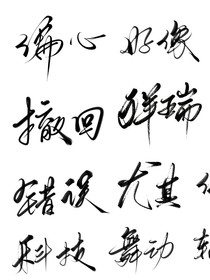 偏心 好像
撤回 祥瑞
错误 尤其
科技 舞动